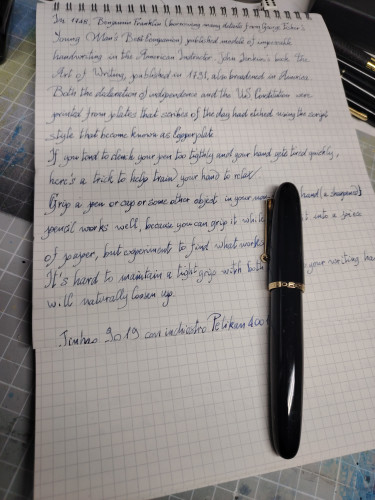 In 1748, Benjamin Franklin (borrowing many details from George Fisher's
Young Man's Best Companion) published models of impossible
handwriting in the American Instructor. John Jenkins's book The
Art of Writing, published in 1791, also broadened in America.
Both the declaration of indipendence and the U.S. Constitution were
printed from plates that scribes of the day had etched using the script
style that became known as Copperplate
If you tend to clench your pen too tightly and your hand gets tired quickly,
here's a trick to help train your hand to relax.
Grip a pen or cup or some other object in your hand (a sharpened
pencil works well, because you can grip it it into a piece
of paper, but experiment to find what works
It's hard to maintain a tight grip with both your writing
will naturally loosen up.
Jinhao 9019 con inchiostro Pelikan 4001